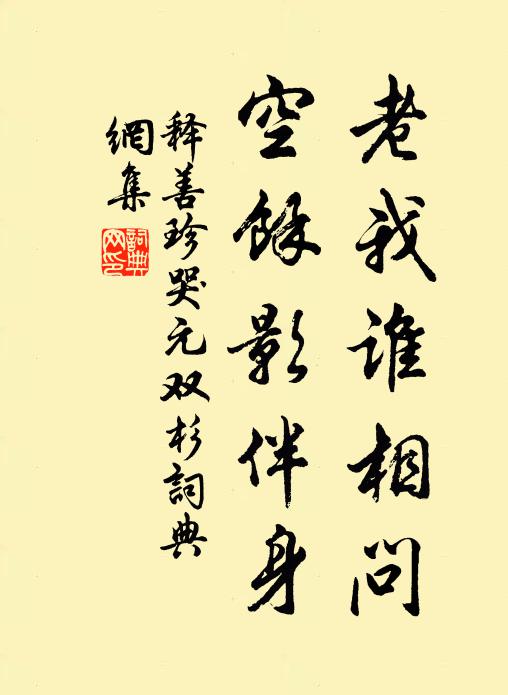 老我谁相问
空馀影伴身
释善珍哭元双杉詞典
網集
詞典
网印